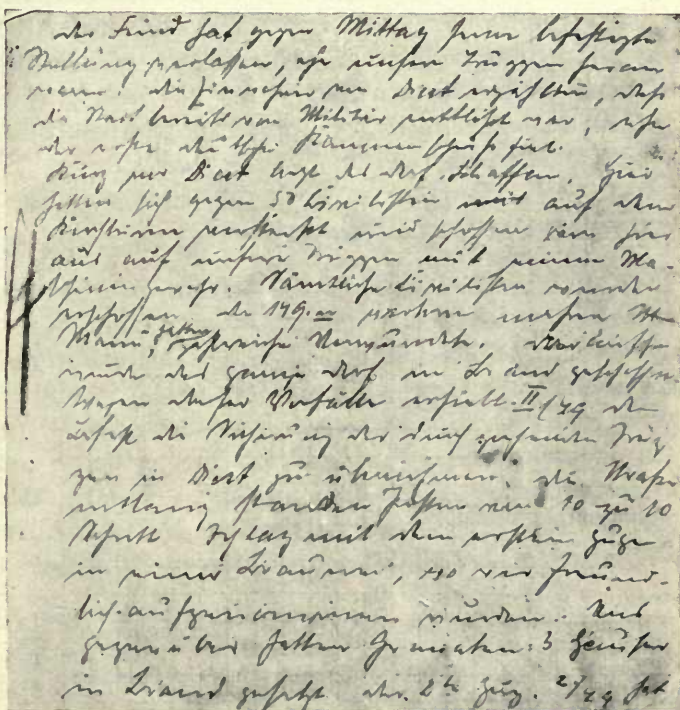 der Feind hat gegen Mittag seine befestigte
Stellung verlassen, ehe unsere Truppen heran
waren. die Einwohner von Diest erzählten, dass
die Stadt bereits von Militär entblößt war, ehe
der erste deutsche Kanonenschuß fiel.
Kurz vor Diest liegt das dorf Schaffen. Hier
hatten sich gegen 50 Civilisten auf dem
Kirchturm versteckt und schossen von hier
aus auf unsere Truppen mit einem Ma-
schinengewehr. Sämtliche Civilisten wurden
erschossen. die 149. verloren mehrere
Mann, hatten zahlreiche Verwundete. darauf
wurde das ganze dorf in Brand geschossen.
Wegen dieser Vorfälle erhielt II/49 den
Befehl die Sicherung der durchziehenden Trup-
pen in Diest zu übernehmen. die Straße
entlang standen Posten von 10 zu 10
Schritt. Ich lag mit dem ersten Zuge
in einer Brauerei, wo wir freund-
lich aufgenommen wurden. Uns
gegenüber hatten Granaten 3 Häuser
in Brand gesetzt. der 2te Zug hat